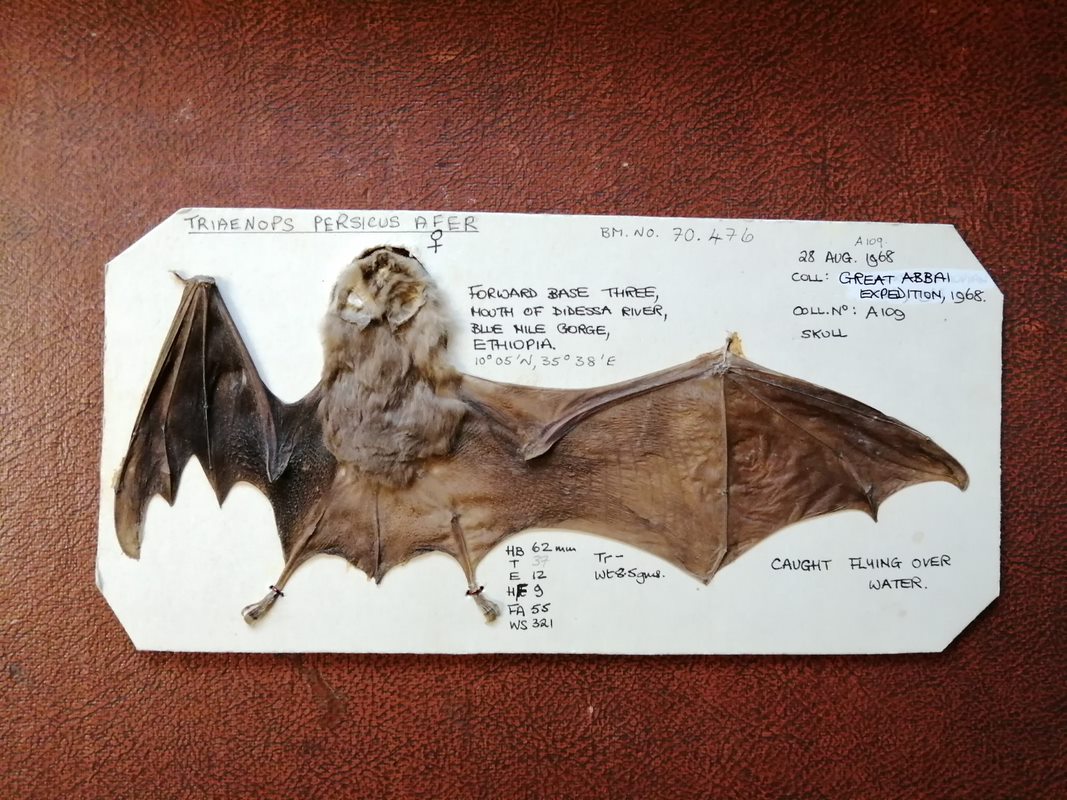 TRIAENOPS PERSICUS AFER
♀
BM. NO. 70.476
A109.
28 AUG. 1968
COLL: GREAT ABBAI
EXPEDITION, 1968.
COLL. Nº: A109
SKULL
FORWARD BASE THREE,
MOUTH OF DIDESSA RIVER,
BLUE NILE GORGE,
ETHIOPIA.
10° 05'N, 35° 38'E
HB 62mm
T 37
E 12
HF 9
FA 55
WS 321
Tr -
Wt 8.5gms.
CAUGHT FLYING OVER
WATER.